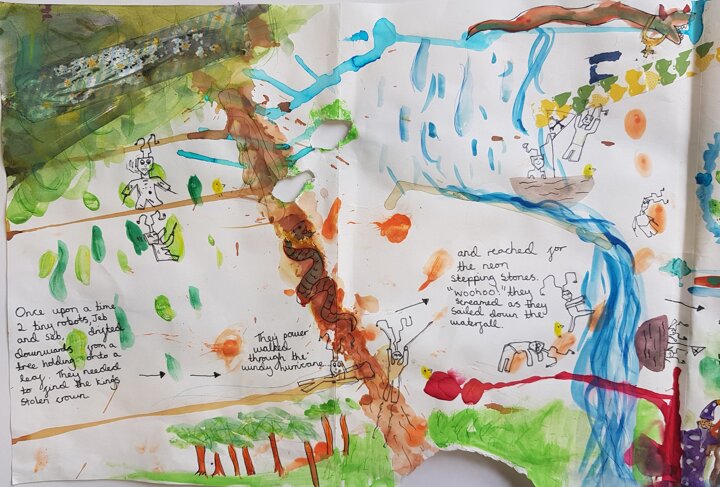 Once upon a time
2 tiny robots, Jeb
and Seb, drifted
downwards from a
tree holding onto a
leaf. They needed
to find the kings
stolen crown
They power
walked
through the
windy hurricane
and reached for
the neon
stepping stones.
"Woohoo!" they
screamed as they
sailed down the
waterfall